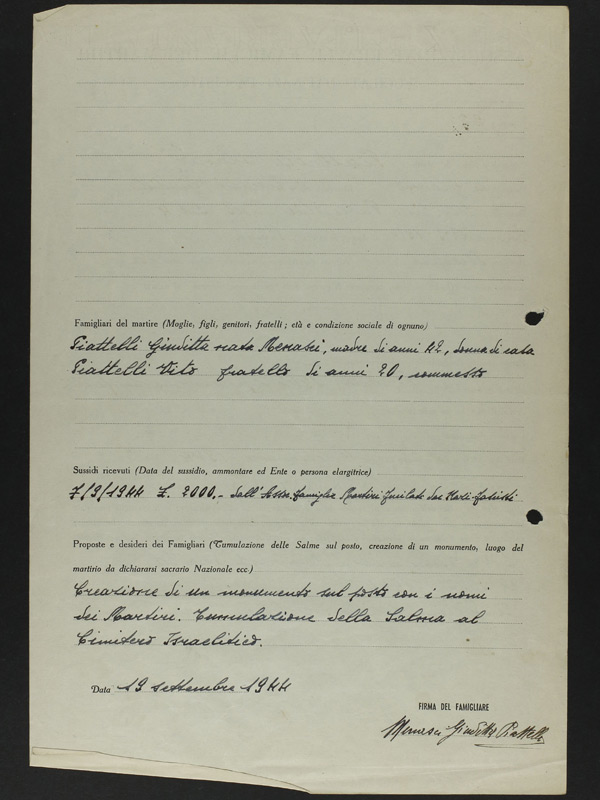 Famigliari del martire (Moglie, figli, genitori, fratelli ; età e condizione sociale di ognuno)
Piattelli Giuditta nata Menasci, madre di anni 42, donna di casa
Piattelli Vito fratello di anni 20, commesso
Sussidi ricevuti (Data del sussidio, ammontare ed Ente o persona elargitrice)
7/9/1944 £. 2000.- dall'Ass. famiglie Martiri fucilati dai Nazi-fascisti
Proposte e desideri dei Famigliari (Tumulazione delle Salme sul posto, creazione di un monumento, luogo del
martirio da dichiararsi sacrario Nazionale ecc.)
Creazione di un monumento sul posto con i nomi
dei Martiri. Tumulazione della Salma al
Cimitero Israelitico.
Data 19 settembre 1944
FIRMA DEL FAMIGLIARE
Menasci Giuditta Piattelli